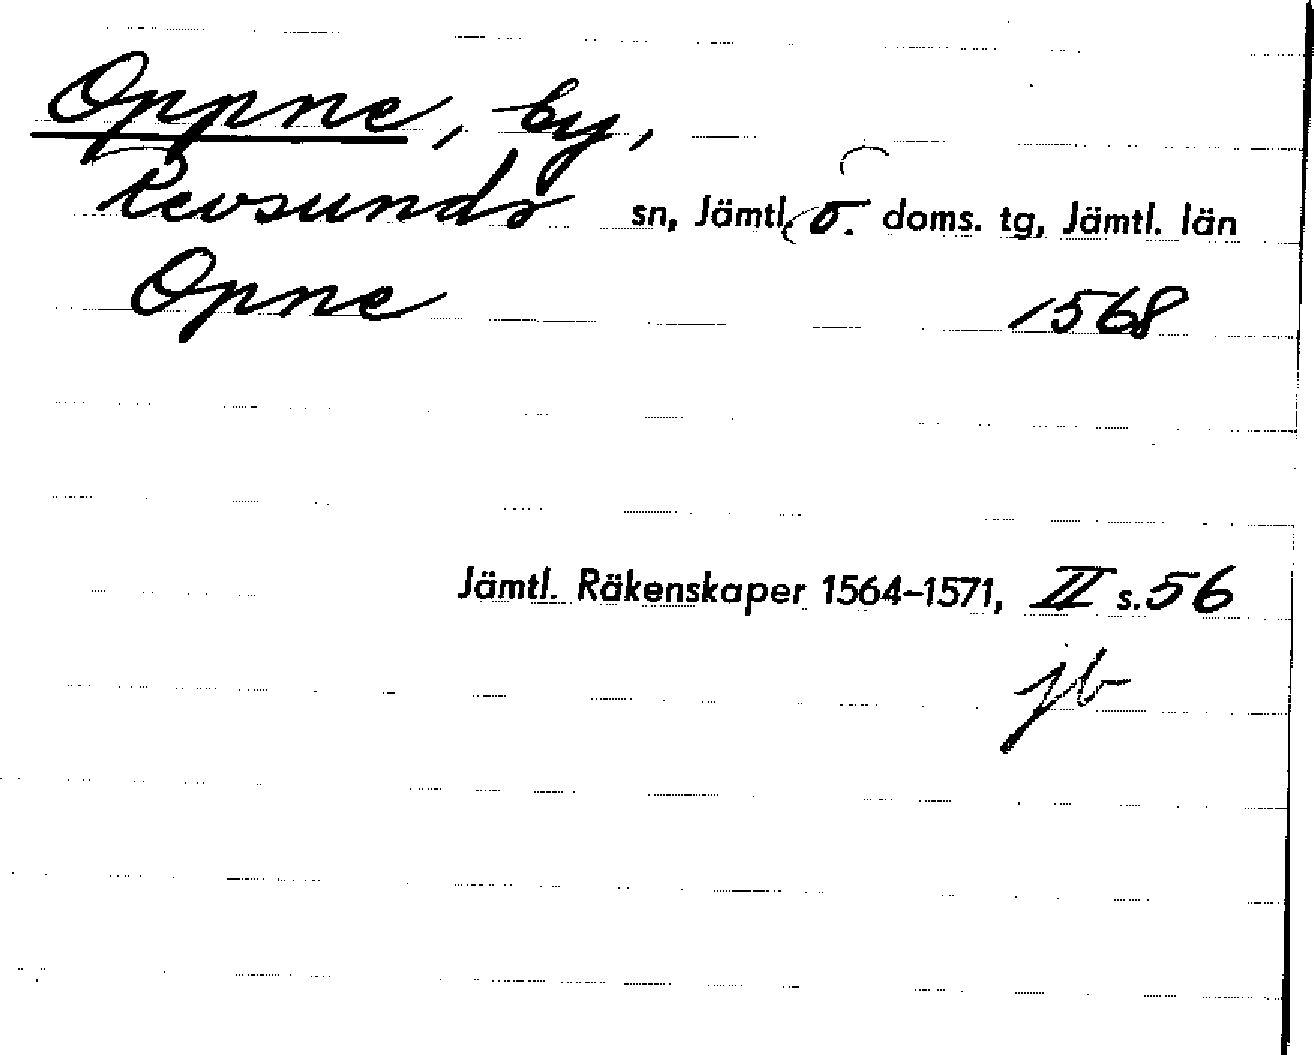 Oppne, by,
Revsunds sn, Jämtl. ö. doms. tg, Jämtl. län
Opne 1568
Jämtl. Räkenskaper 1564-1571, II s. 56
jb